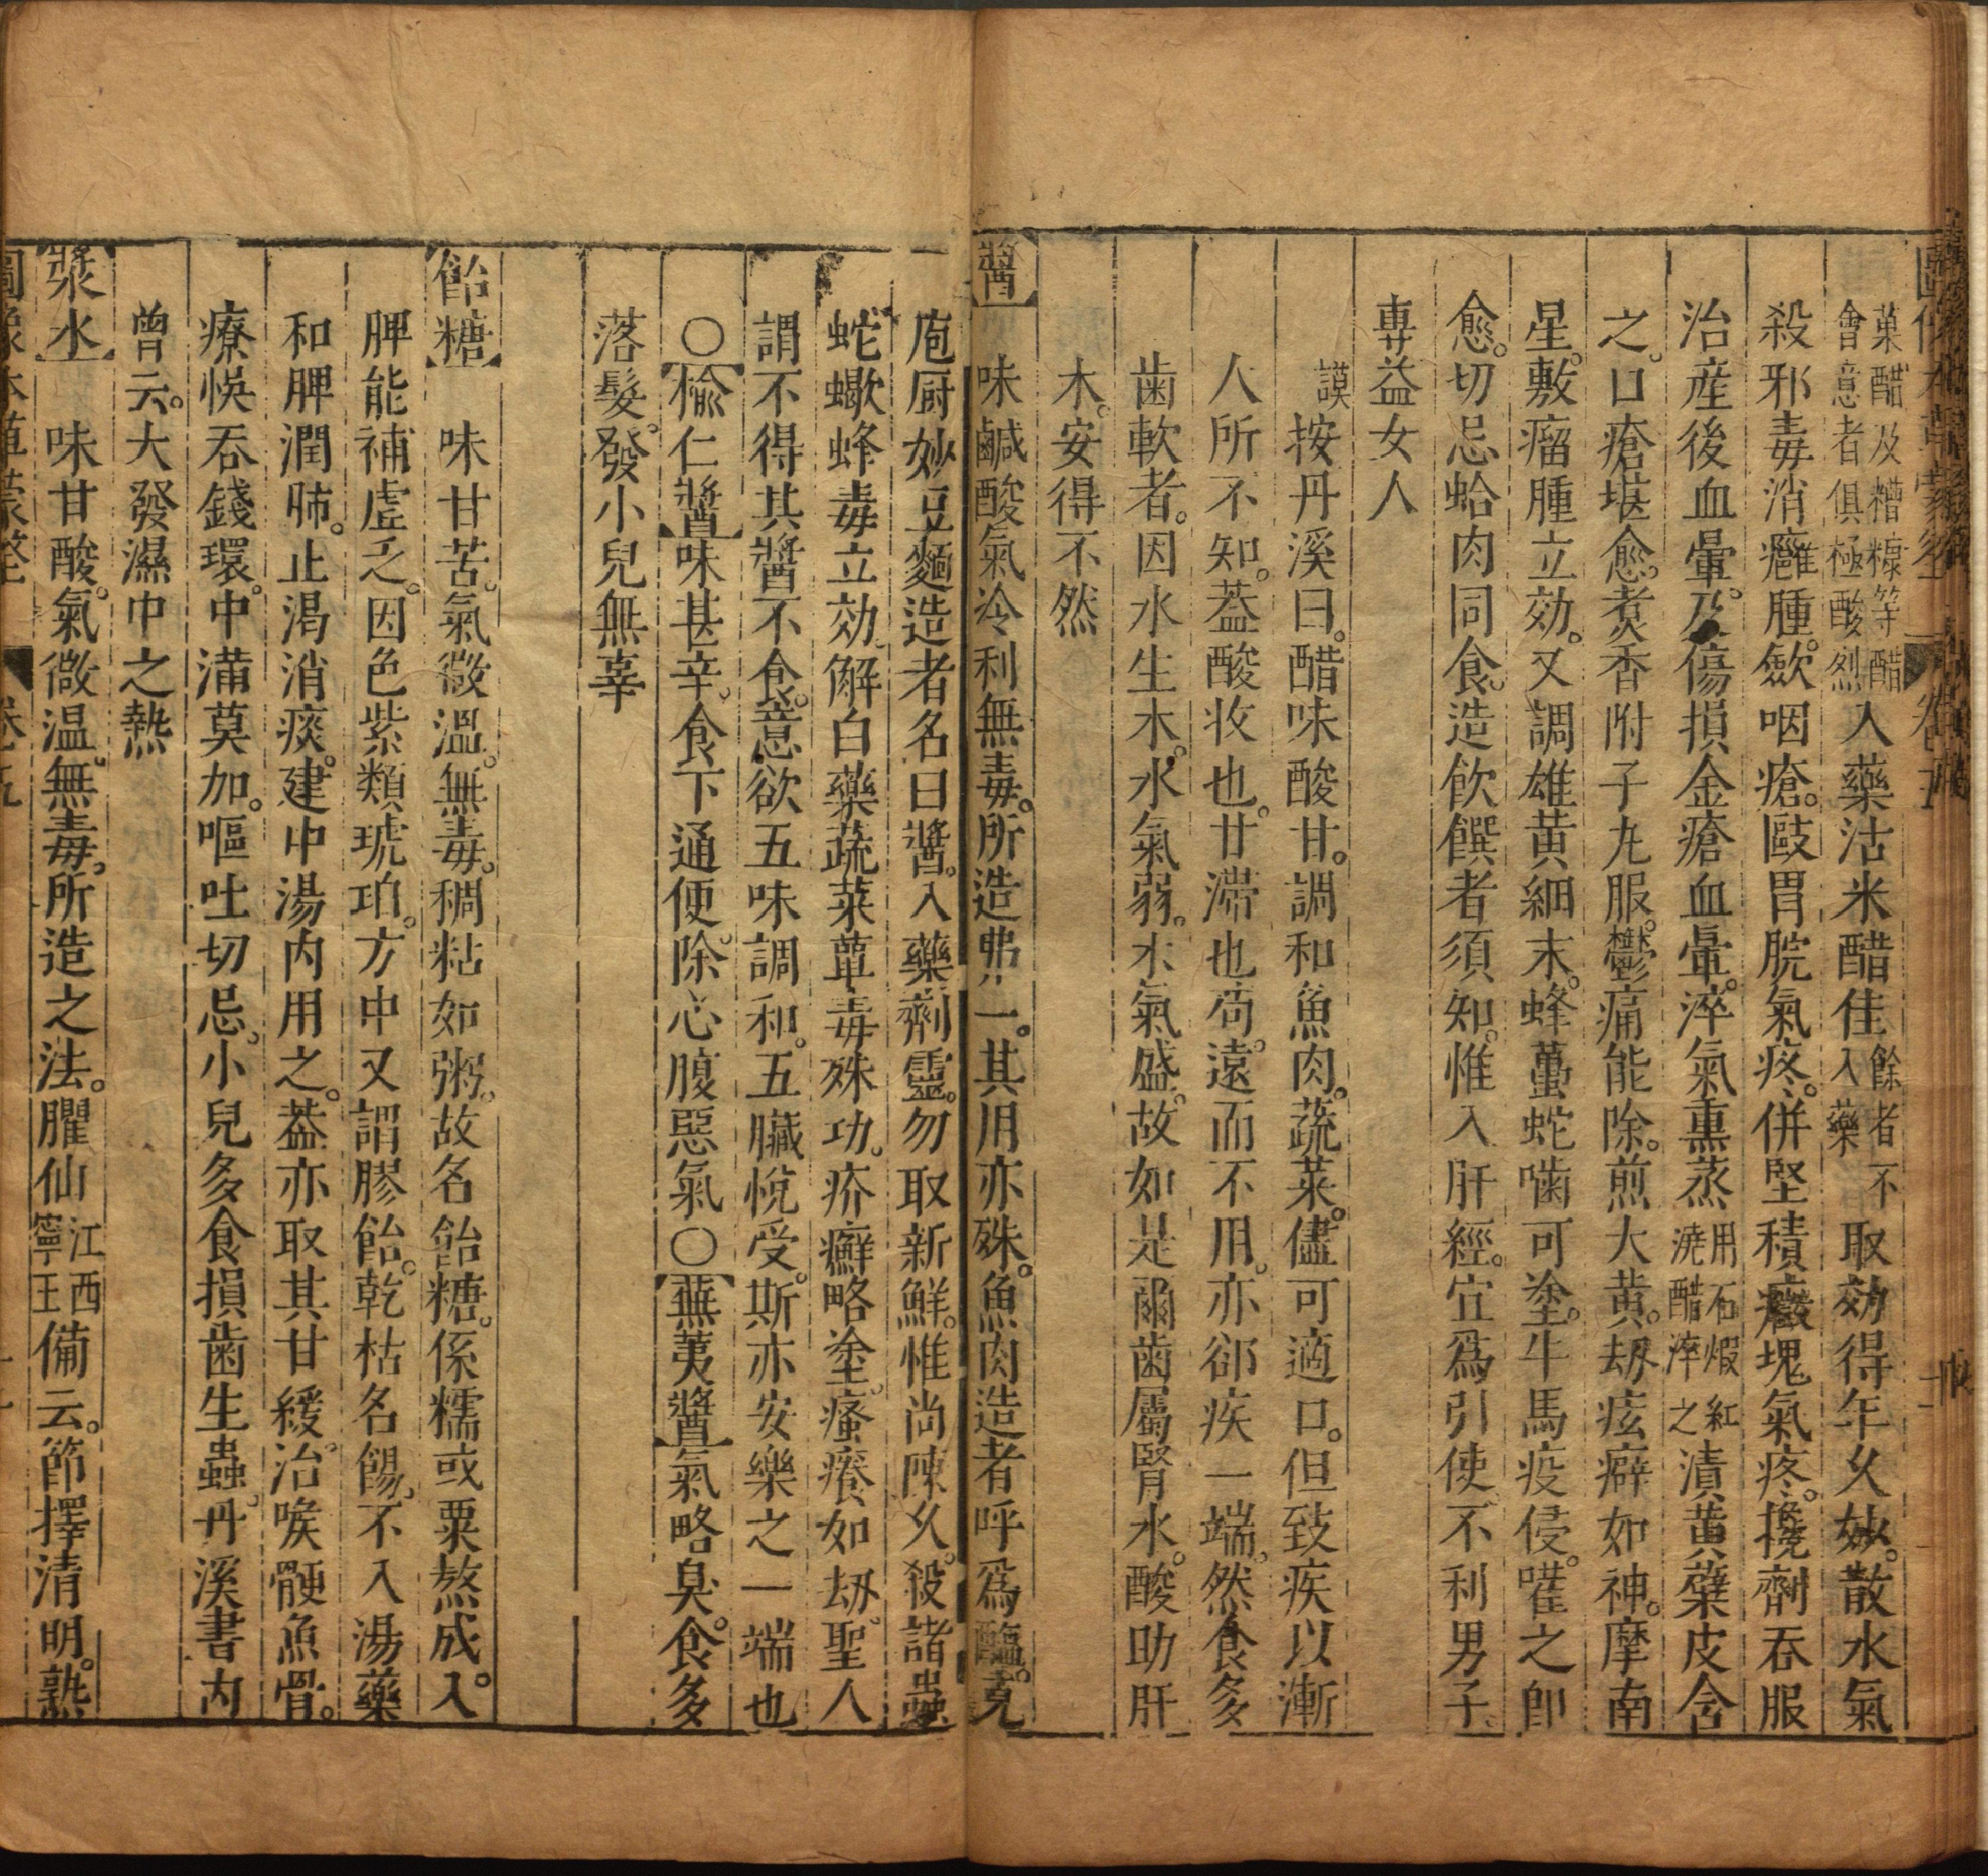 菓醋及糟糠等醋會意者俱極酸烈入藥沽米醋佳餘者不入藥取効得年久妙散水氣
殺邪毒消癰腫。斂咽瘡。毆胃脘氣疼。併堅積癥塊氣疼。攙劑吞服
治產後血暈。及傷損金瘡血暈。淬氣熏蒸用石煆紅澆醋淬之漬黃蘗皮含
之。口瘡堪愈。煮香附子丸服。鬱痛能除。煎大黃。刼痃癖如神。摩南
星。敷瘤腫立効。又調雄黃細末。蜂蠆蛇嚙可塗。牛馬疫侵。嚾之卽
愈。切忌蛤肉同食。造飲饌者須知。惟入肝經。宜爲引使不利男子
專益女人
謨按丹溪曰。醋味酸甘。調和魚肉。蔬菜。儘可適口。但致疾以漸
人所不知。葢酸收也。甘滯也。苟。遠而不用。亦郤疾一端。然食多
歯軟者。因水生木。水氣弱。木氣盛。故如是爾歯屬腎水。酸助肝
木。安得不然
醬 味鹹酸氣冷利無毒。所造弗一。其用亦殊。魚肉造者呼爲醢。充
庖厨妙豆麵造者名曰醬。入藥劑靈。勿取新鮮。惟尚陳久。殺諸蟲
蛇蠍蜂毒立効。解白藥蔬菜蕈毒殊功。疥癬略塗。瘙癢如刼。聖人
謂不得其醬不食。意欲五味調和。五臟悅受。斯亦安樂之一端也
○榆仁醬味甚辛。食下通便。除心腹惡氣○蕪荑醬氣略臭。食多
落髮。發小兒無辜
飴糖 味甘苦。氣微溫。無毒。稠粘如粥。故名飴糖。係糯或粟熬成。入
脾能補虛乏。因色紫類琥珀。方中又謂膠飴。乾枯名餳。不入湯藥
和脾潤肺。止渴消痰。建中湯內用之。葢亦取其甘緩。治喉骾魚骨。
療悞吞錢環。中滿莫加。嘔吐切忌。小兒多食損歯生蟲。丹溪書內
曾云。大發濕中之熱
漿水 味甘酸。氣微温。無毒。所造之法。臞仙江西寧王備云。節擇清明。熟